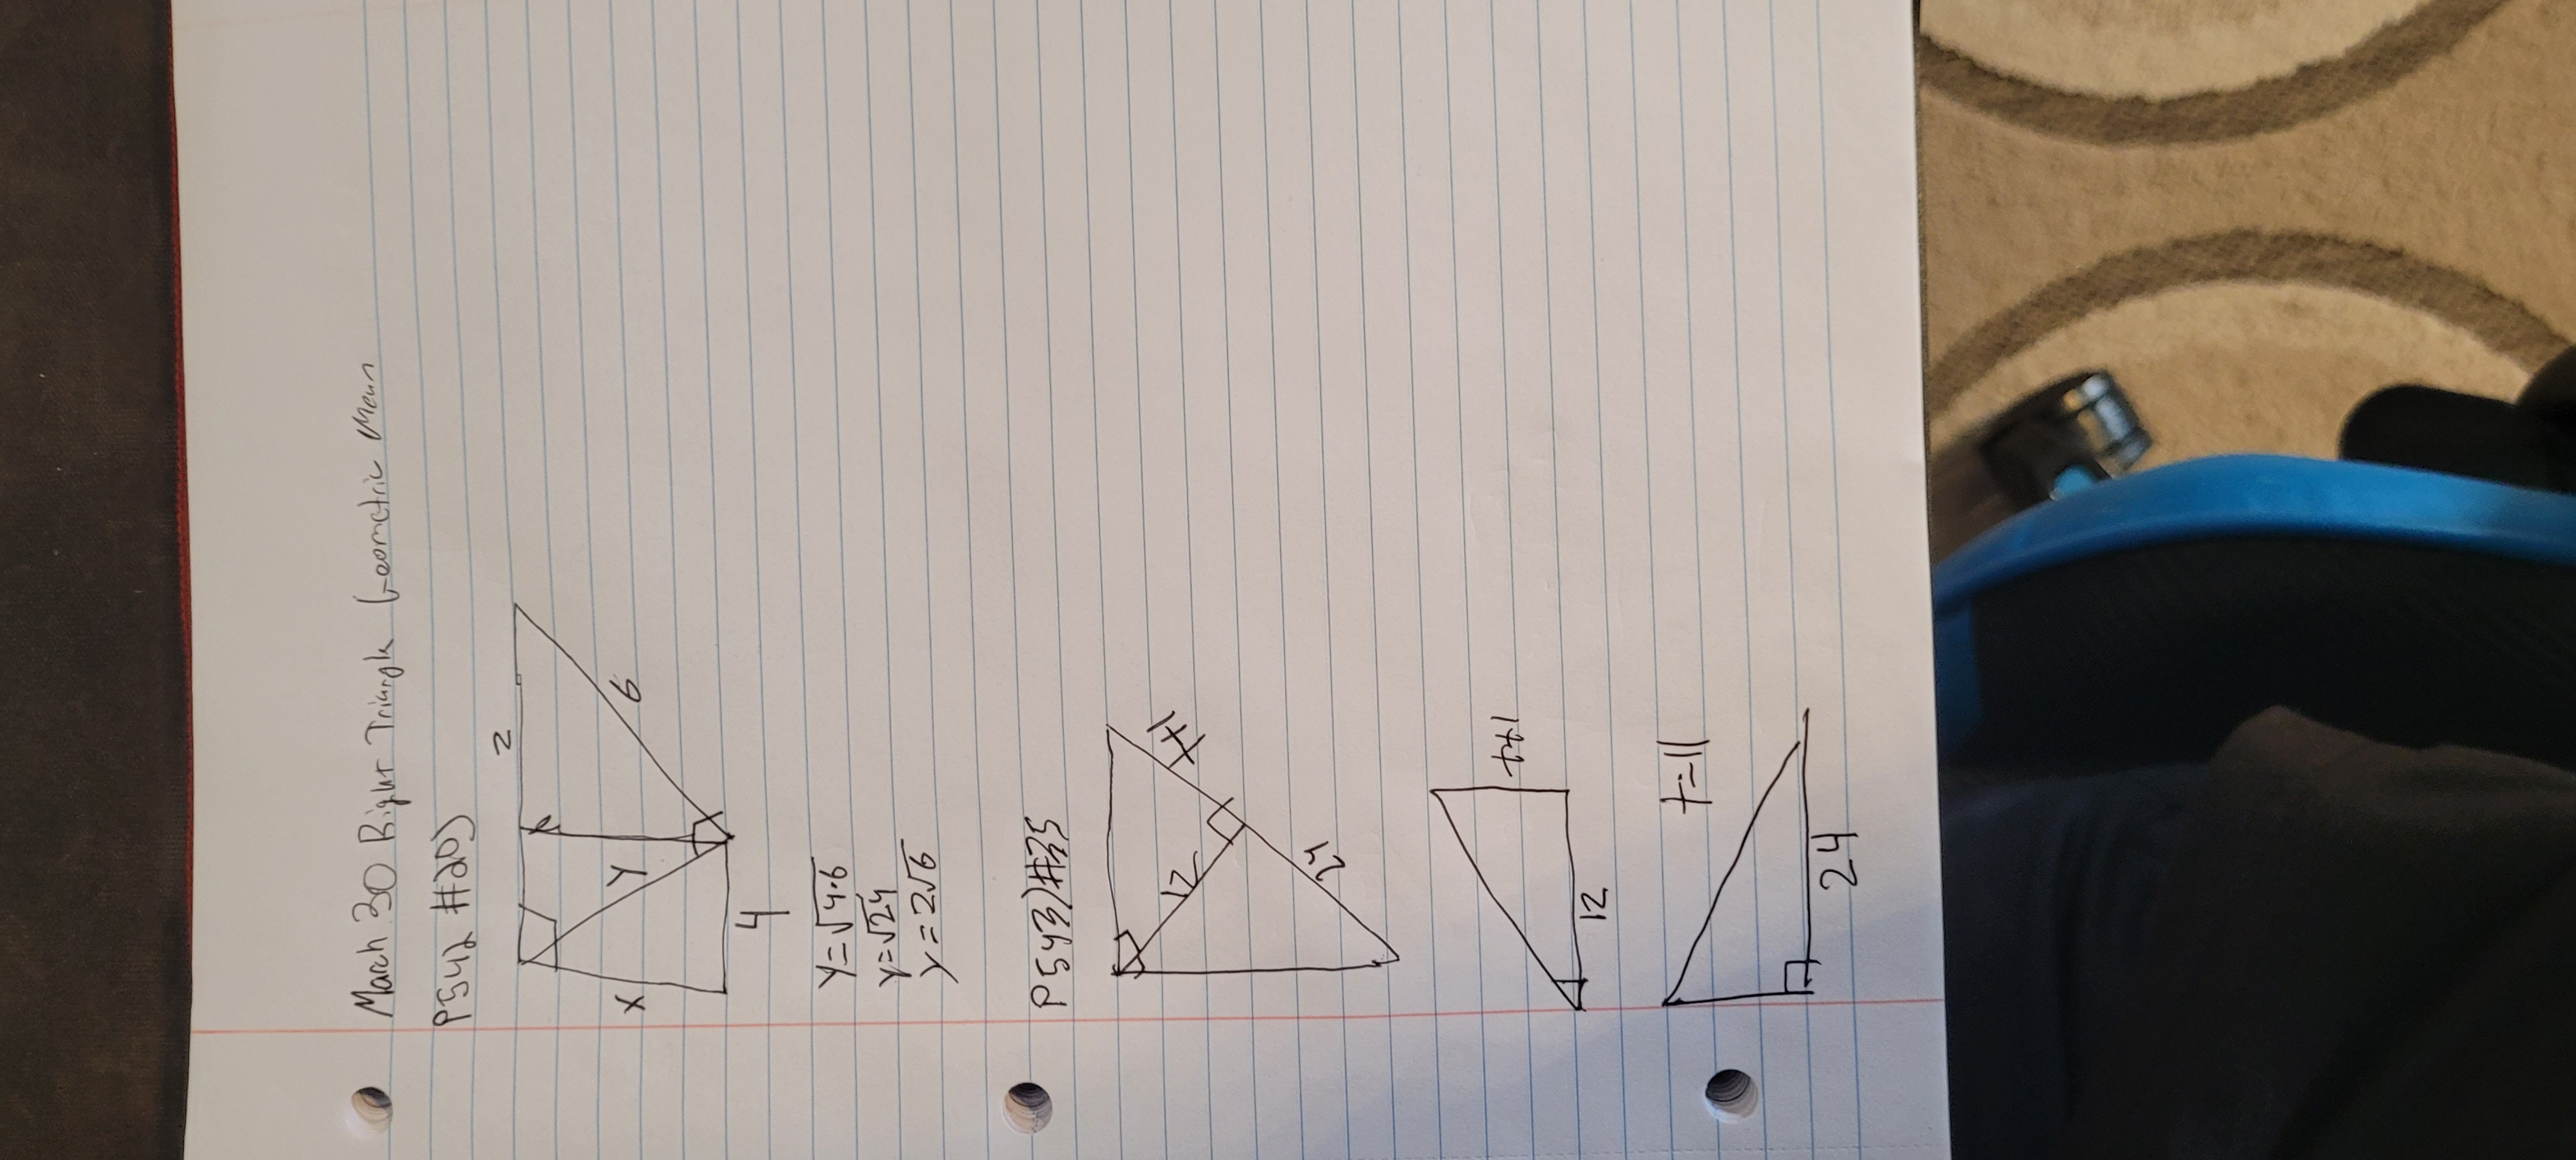 March 30 Right Triangle Geometric Mean
P542 #20)
2
X
Y
6
4
Y=√4·6
y=√24
y=2√6
P543)#35
12
t+1
24
t+1
12
t=11
24